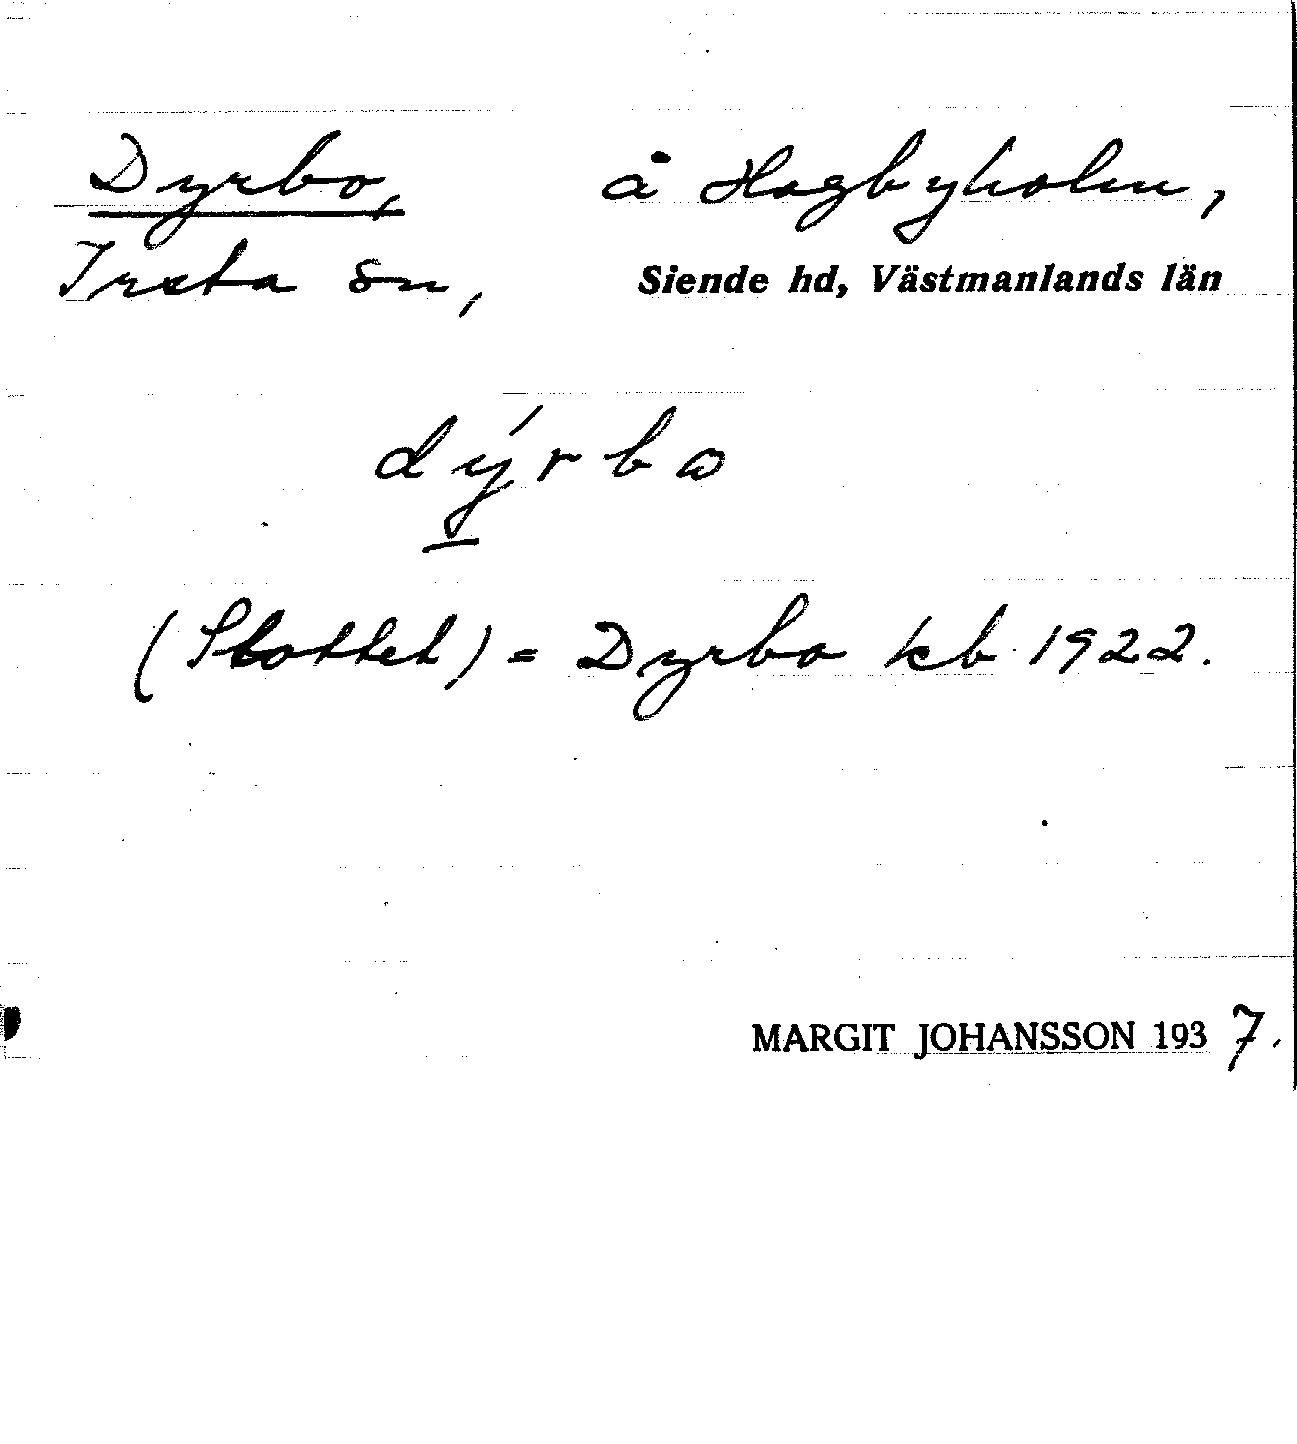 Dyrbo, å Hagbyholm,
Irsta sn, Siende hd, Västmanlands län
dýrbo
(Slottet) = Dyrbo kb 1922.
MARGIT JOHANSSON 1937.